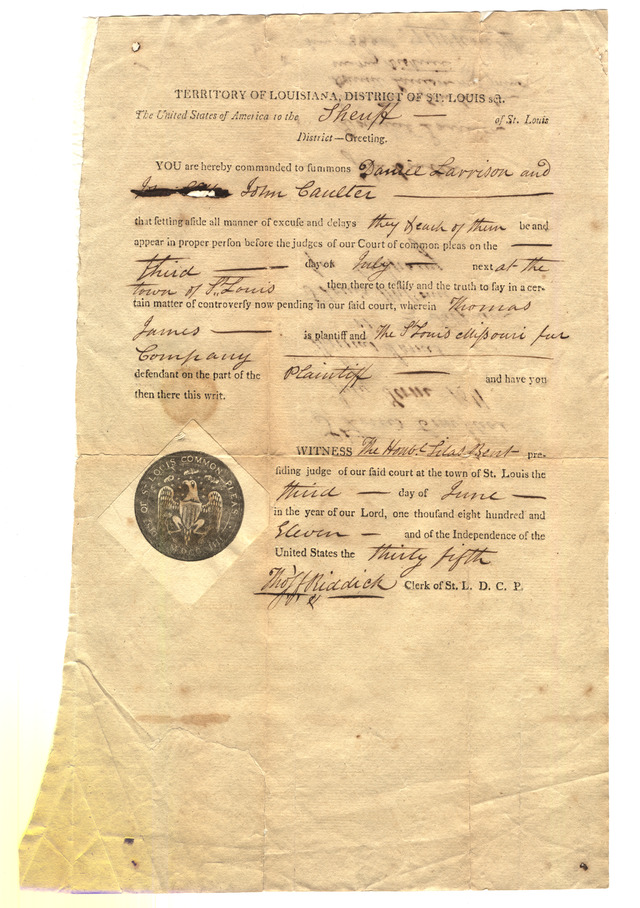 TERRITORY OF LOUISIANA, DISTRICT OF ST. LOUIS sct.
The United States of America to the Sheriff — of St. Louis
District—Greeting.
YOU are hereby commanded to summons Daniel Larrison and
John Caulter
that setting aside all manner of excuse and delays they & each of them be and
appear in proper person before the judges of our Court of common pleas on the —
third — day of July — next at the
town of St. Louis then there to testify and the truth to say in a cer-
tain matter of controversy now pending in our said court, wherein Thomas
James — is plaintiff and The St Louis Missouri fur
Company
defendant on the part of the Plaintiff — and have you
then there this writ.
WITNESS The Honbl. Silas Bent pre-
siding judge of our said court at the town of St. Louis the
third — day of June —
in the year of our Lord, one thousand eight hundred and
Eleven — and of the Independence of the
United States the thirty fifth
Thos. F. Riddick Clerk of St. L. D. C. P.
ST LOUIS COMMON PLEAS